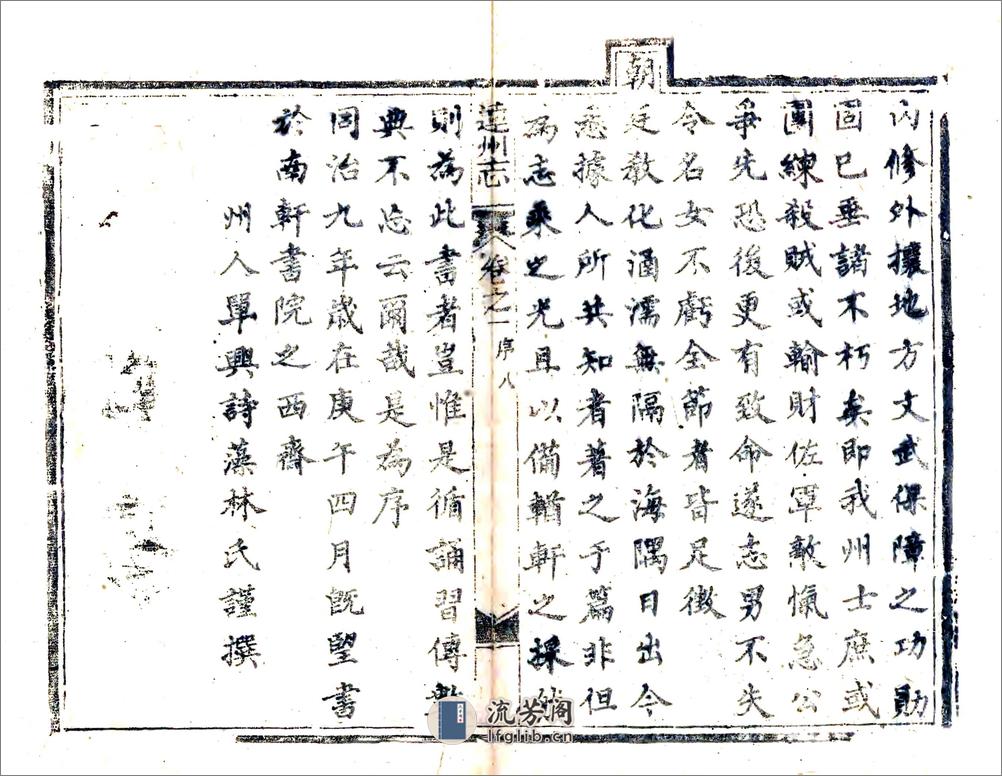 內修外攘地方文武保障之功勛
固已垂諸不朽矣即我州士庶或
團練殺賊或輸財佐軍敵愾急公
爭先恐後更有致命遂志男不失
令名女不虧全節者皆足徵
朝
廷教化涵濡無隔於海隅日出今
悉據人所共知者著之于篇非但
為志乘之光且以備輶軒之採
蓮州志
卷之一
序
八
則為此書者豈惟是循誦習傳數
典不忘云爾哉是為序
同治九年歲在庚午四月既望書
於南軒書院之西齋
州人單興詩藻林氏謹撰
流芳閣
lfglib.cn